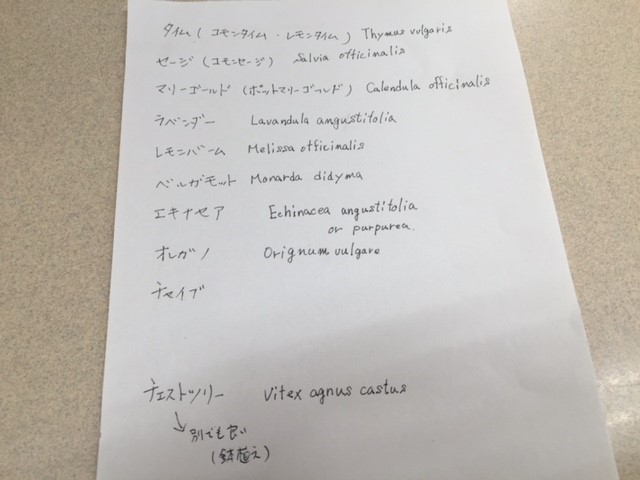 タイム(コモンタイム・レモンタイム) Thymus vulgaris
セージ(コモンセージ) Salvia officinalis
マリーゴールド(ポットマリーゴールド) Calendula officinalis
ラベンダー Lavandula angustifolia
レモンバーム Melissa officinalis
ベルガモット Monarda didyma
エキナセア Echinacea angustifolia
or purpurea.
オレガノ Orignum vulgare
チャイブ
チェストツリー Vitex agnus castus
↓別でも良い
(鉢植え)